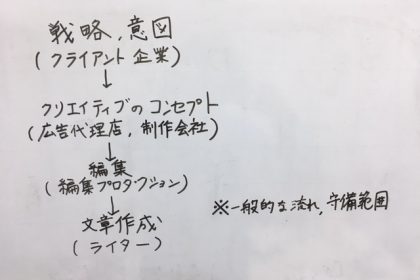 戦略,意図
(クライアント企業)
↓
クリエイティブのコンセプト
(広告代理店,制作会社)
↓
編集
(編集プロダクション)
↓
文章作成
(ライター)
※一般的な流れ,守備範囲